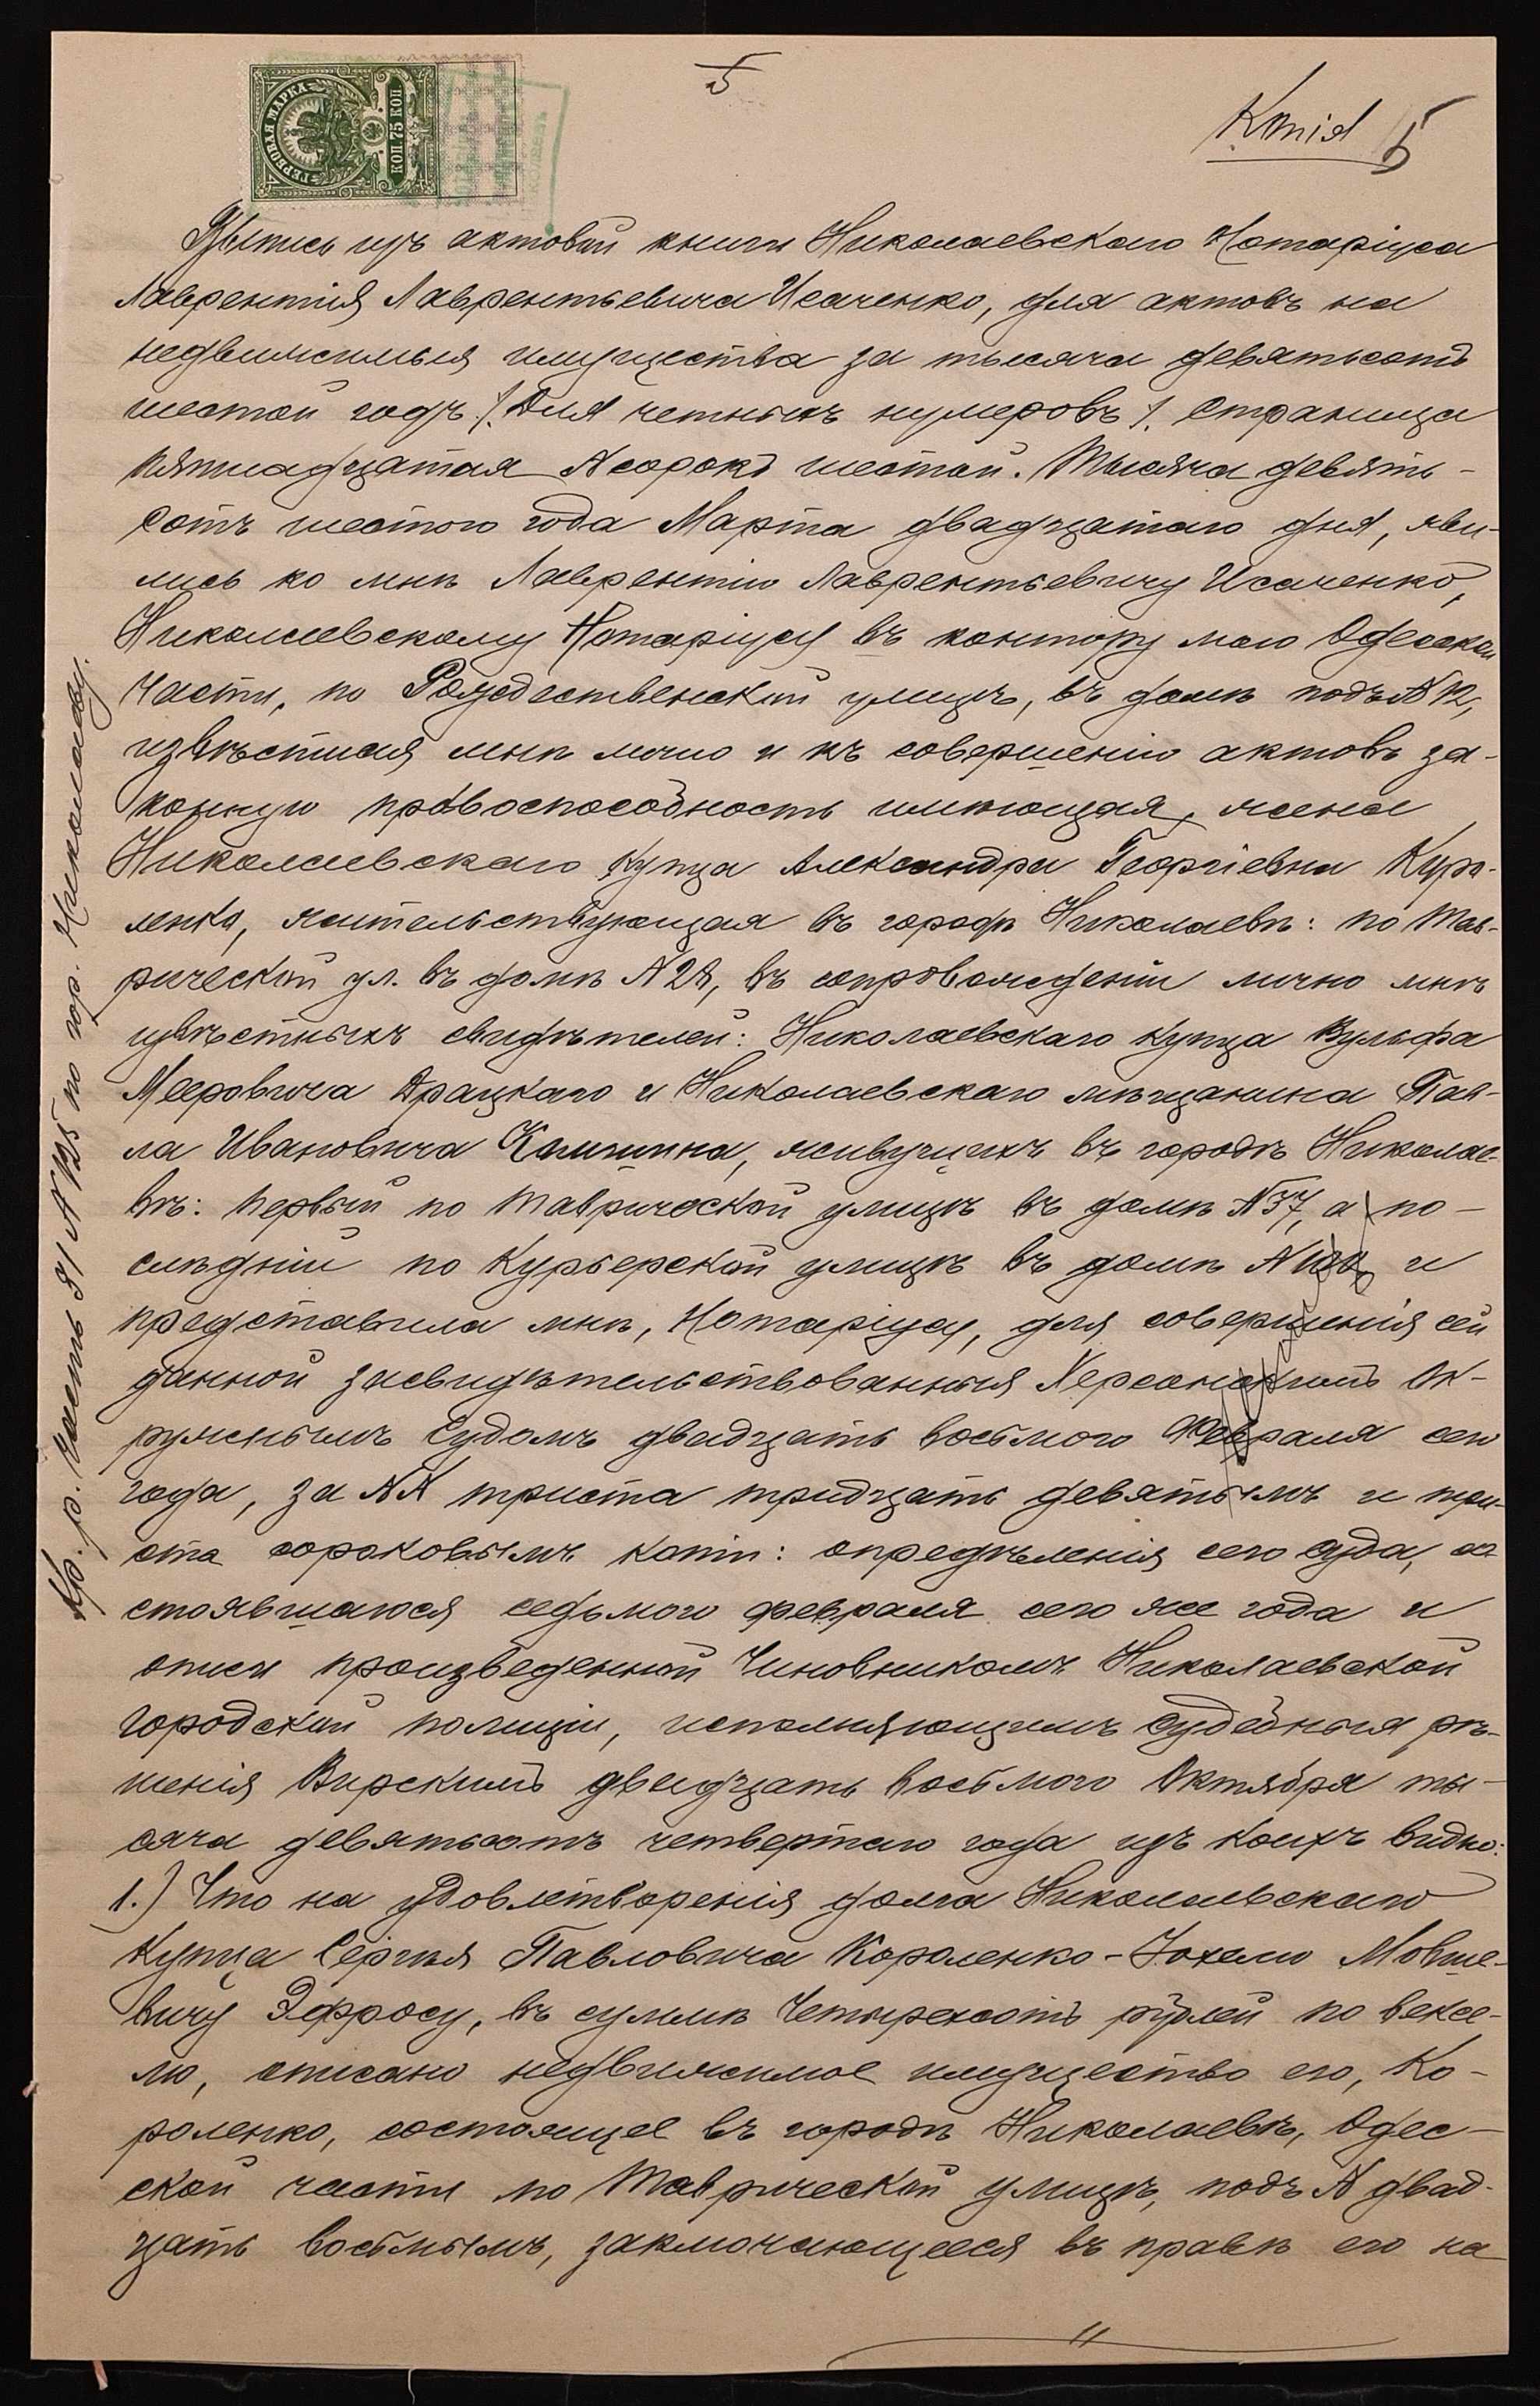 5
Копія 5
ГЕРБОВАЯ МАРКА
КОП. 75 КОП
Выпись изъ актовой книги Николаевскаго Нотаріуса
Лаврентія Лаврентьевича Исаченко, для актовъ на
недвижимыя имущества за тысяча девятьсотъ
шестой годъ /. Для четныхъ нумеровъ /. Страница
пятнадцатая № сорокъ шестой. Тысяча девять-
сотъ шестого года Марта двадцатаго дня, яви-
лись ко мнѣ Лаврентію Лаврентьевичу Исаченко,
Николаевскому Нотаріусу въ контору мою Одесской
части, по Рождественской улицѣ, въ домѣ подъ № 12,
извѣстная мнѣ лично и къ совершенію актовъ за-
конную правоспособность имѣющая, жена
Николаевскаго купца Александра Георгіевна Коро-
ленко, жительствующая въ городѣ Николаевѣ: по Тав-
рической ул. въ домѣ № 28, въ сопровожденіи лично мнѣ
извѣстныхъ свидѣтелей: Николаевскаго купца Вульфа
Мееровича Драцкаго и Николаевскаго мѣщанина Пав-
ла Ивановича Калинина, живущихъ въ городѣ Никола-
евѣ: первый по Таврической улицѣ въ домѣ № 37, а по-
слѣдній по Курьерской улицѣ въ домѣ № и
представила мнѣ, Нотаріусу, для совершенія сей
данной засвидѣтельствованныя Херсонскимъ Ок-
ружнымъ Судомъ двадцать восьмого Февраля сего
года, за №№ триста тридцать девятымъ и три-
ста сороковымъ копіи: опредѣленія сего суда, со-
стоявшагося седьмого февраля сего же года и
описи произведенной Чиновникомъ Николаевской
городской полиціи, исполняющимъ судебныя рѣ-
шенія Вирскимъ двадцать восьмого Октября ты-
сяча девятьсотъ четвертаго года изъ коихъ видно:
1.) Что на удовлетвореніе долга Николаевскаго
купца Сергѣя Павловича Короленко - Іохелю Мовше-
вичу Эфросу, въ суммѣ четырехсотъ рублей по вексе-
лю, описано недвижимое имущество его, Ко-
роленко, состоящее въ городѣ Николаевѣ, Одес-
ской части по Таврической улицѣ, подъ № двад-
цать восьмымъ, заключающееся въ правѣ его на
Кр. р. Часть II № 125 по гор. Николаеву.